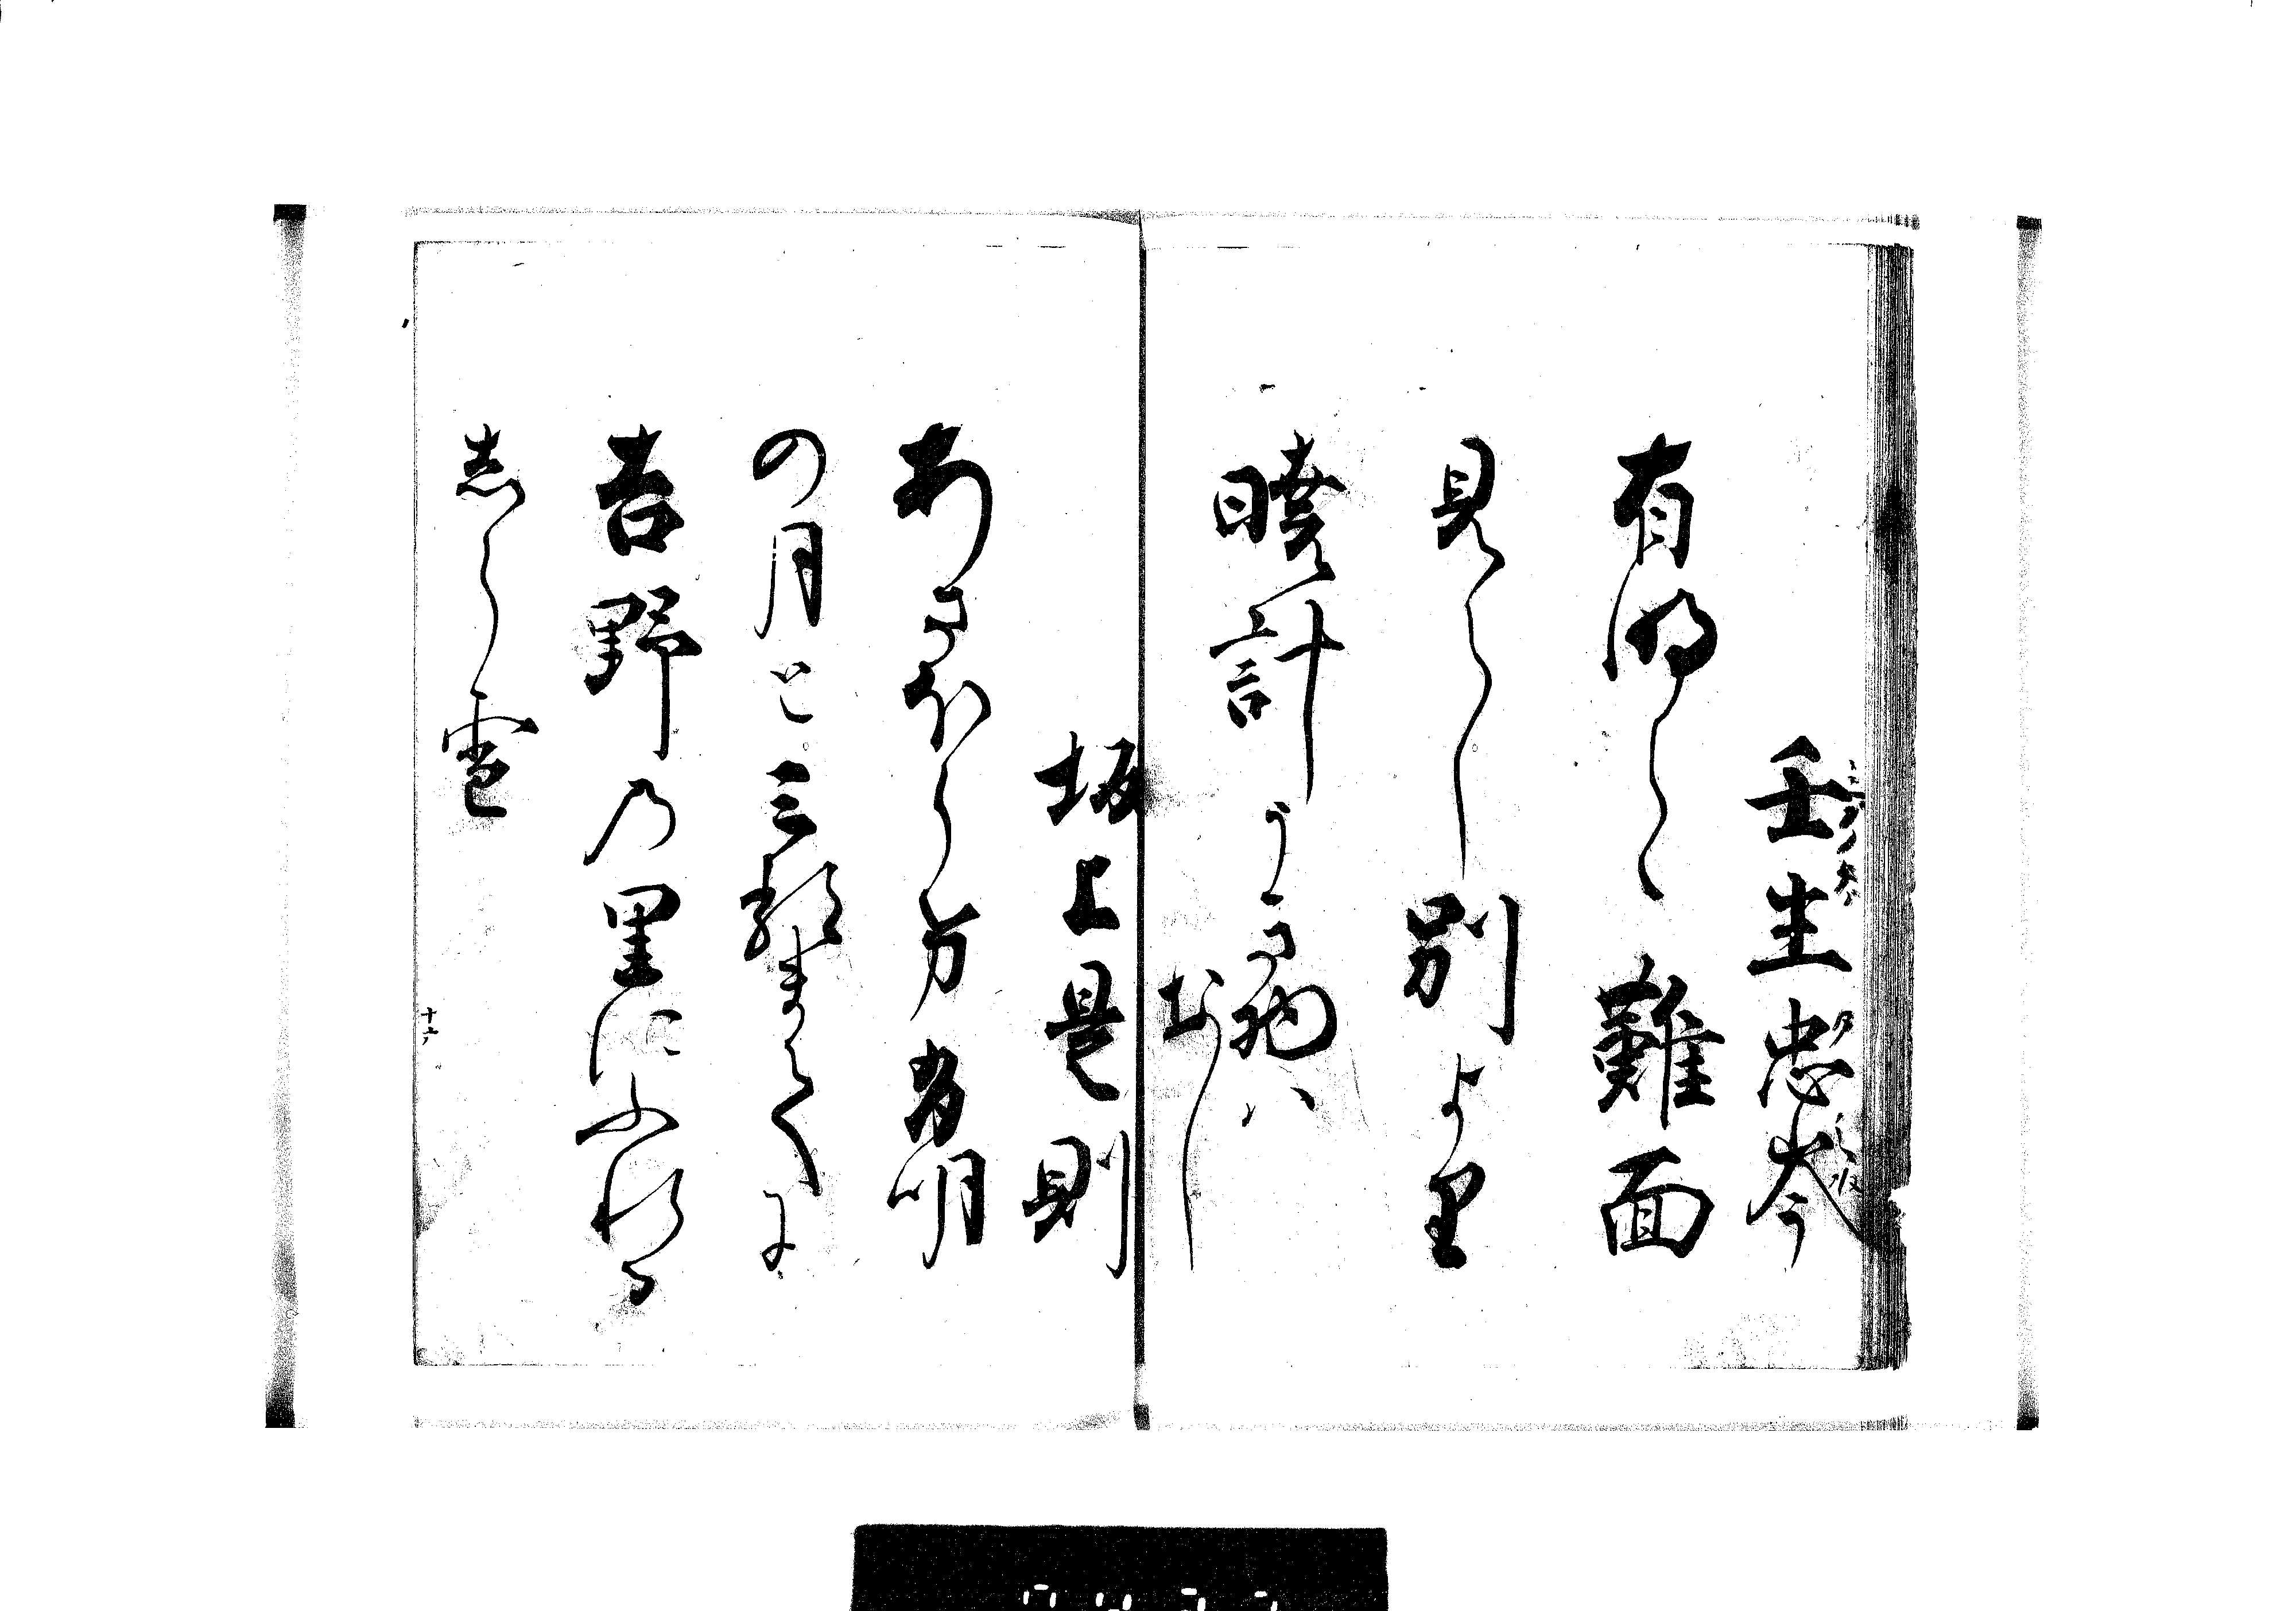 壬生忠岑
有明のつれ難面
見えし別より
暁計うき物ハ
なし
坂上是則
あさほらけ有明
の月と三るまてに
吉野乃里にふれる
しら雪
十六